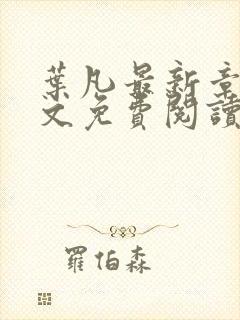 葉凡最新章
文免費閱讀
羅伯森